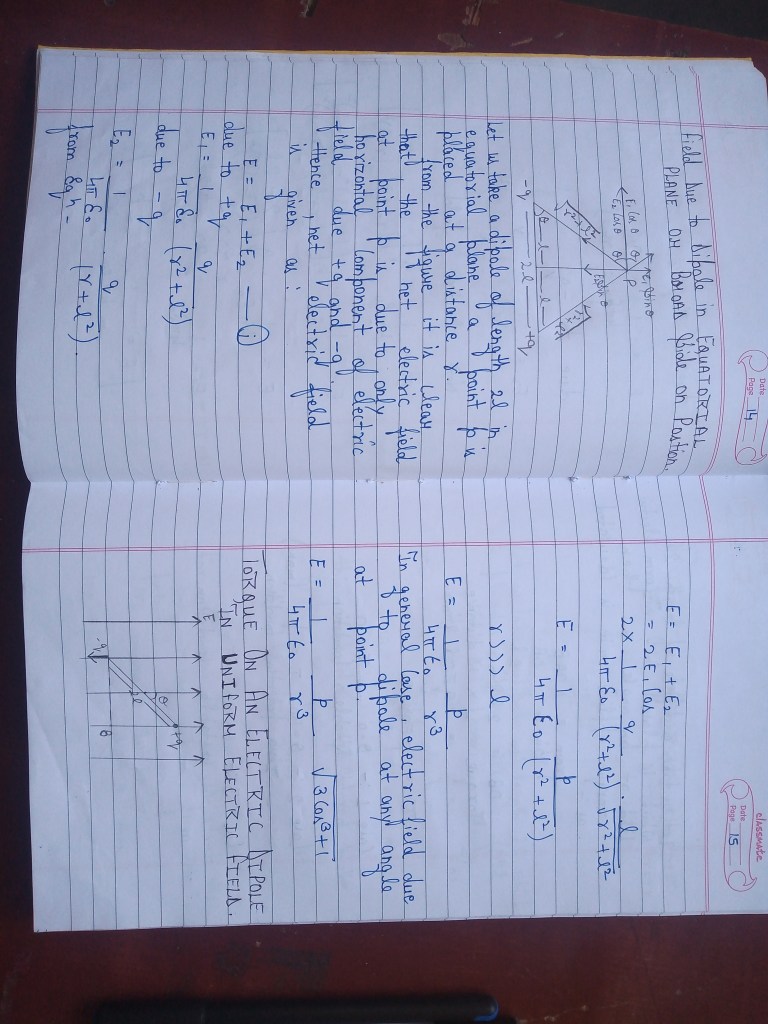 Date
Page 14
Field Due to Dipole in EQUATORIAL
PLANE OR BOROAD Side on Postion.
E1 Cos θ
E2 Cos θ
P
θ
θ
E2 Sin θ
√r²+l²
θ
l
l
-q
2l
+q
Let us take a dipole of length 2l in
equatorial plane a point p is
placed at a distance r.
from the figure it is clear
that the net electric field
at point p is due to only
horizontal component of electric
field due +q and -q.
Hence, net electric field
is given as:
E = E1 + E2 — (i)
due to +q
E1 = 1/4πε0 q/(r²+l²)
due to -q
E2 = 1/4πε0 . q/(r+l²).
from Eqn -
classmate
Date
Page 15
E = E1 + E2
= 2 E1 Cos
2 x 1/4πε0 q/(r²+l²) . l/√r²+l²
E = 1/4πε0 p/(r²+l²)
r>>> l
E = 1/4πε0 p/r³
In general Case, electric field due
to dipole at any angle
at point p.
E = 1/4πε0 p/r³ √3Cos³+1
TORQUE ON AN ELECTRIC DIPOLE
IN UNIFORM ELECTRIC FIELD.
E
+q
θ
2l
-q